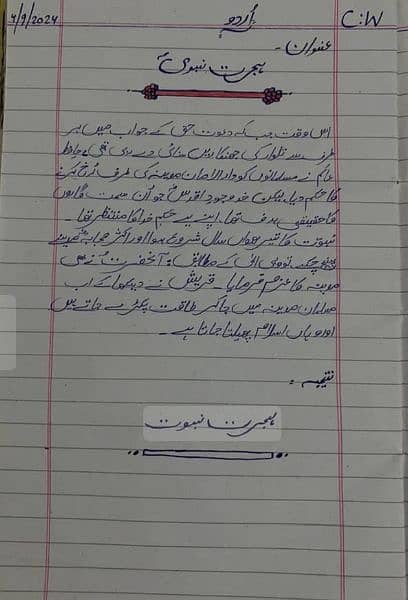 4/9/2024 اُردو C:W
عنوان -
ہجرت نبویؐ
اس وقت جب کہ دعوت حق کے جواب میں ہر
طرف سے تلوار کی جھنکاریں سنائی دے رہی تھی، حافظ
عالم نے مسلمانوں کو دارالامان مدینہ کی طرف رُخ کرنے
کا حکم دیا۔ لیکن خود وجود اقدسؐ جو ان سمت گاروں
کا حقیقی ہدف تھا، اپنے لیے حکم خدا کا منتظر تھا۔
نبوت کا تیرھواں سال شروع ہوا اور اکثر صحابہؓ مدینے
پہنچ چکے تو وحی الٰہی کے مطابق آنحضرتؐ نے بھی
مدینہ کا عزم فرمایا۔ قریش نے دیکھا کہ اب
مسلمان مدینہ میں جا کر طاقت پکڑتے جاتے ہیں
اور وہاں اسلام پھیلتا جاتا ہے۔
نتیجہ :
ہجرت نبوت